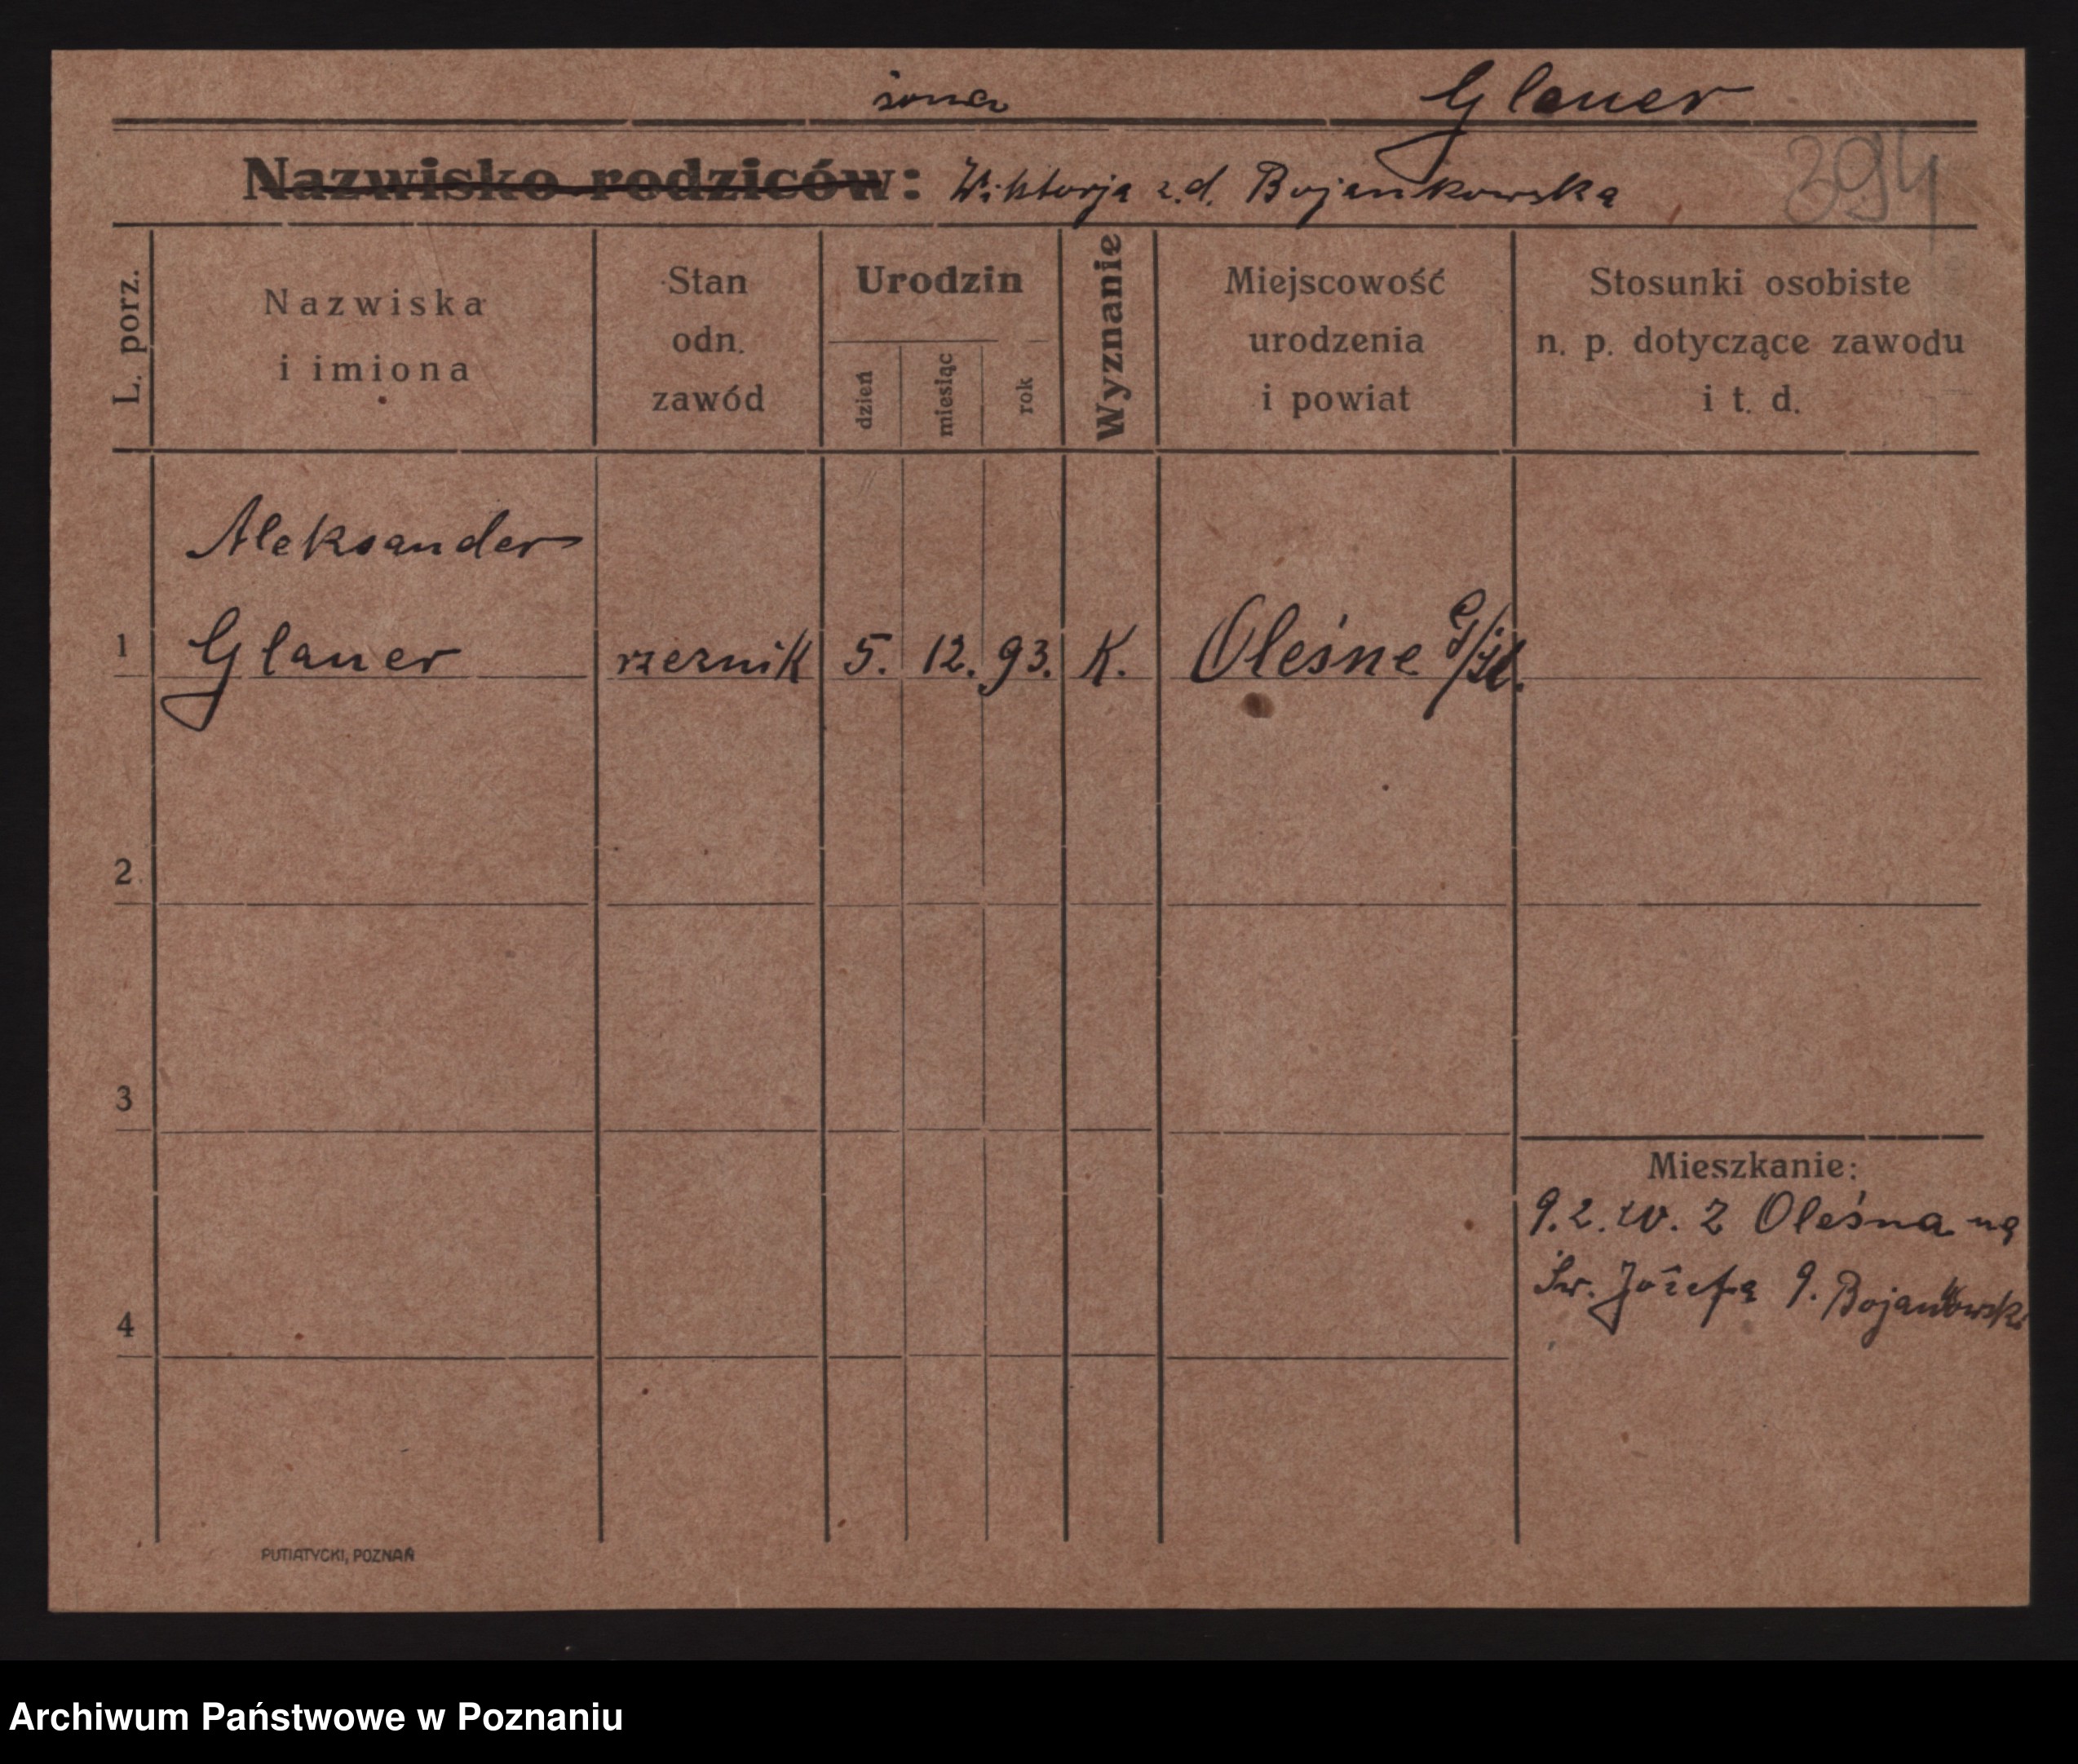 żona Glauer
Nazwisko rodziców: Wiktorja z.d. Bojankowska 394
L. porz.
Nazwiska
i imiona
Stan
odn.
zawód
Urodzin
dzień
miesiąc
rok
Wyznanie
Miejscowość
urodzenia
i powiat
Stosunki osobiste
n. p. dotyczące zawodu
i t. d.
Aleksander
1 Glauer rzeźnik 5. 12. 93. K. Oleśne G/Śl.
2
3
4
Mieszkanie:
9.2. z Oleśna na
Św. Józefa 9. Bojankowski
PUTIATYCKI, POZNAŃ
Archiwum Państwowe w Poznaniu